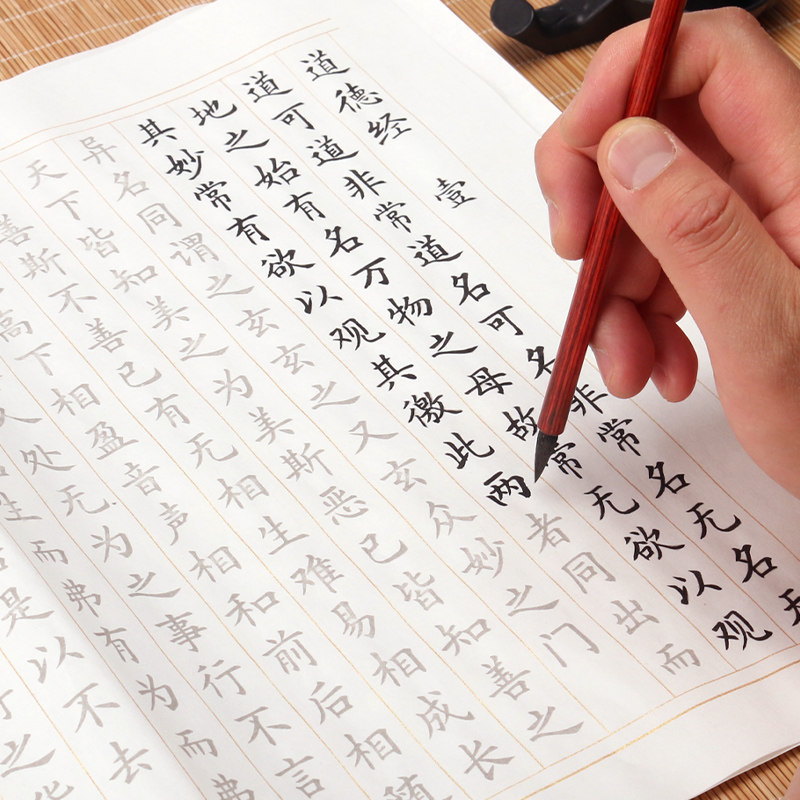 道德经 壹
道可道非常道名可名非常名无名
地之始有名万物之母故常无欲以观
其妙常有欲以观其徼此两者同出而
异名同谓之玄玄之又玄众妙之门
天下皆知美之为美斯恶已皆知善之
善斯不善已有无相生难易相成长
高下相盈音声相和前后相随
人处无为之事行不言
生而弗有为而弗
是以不去
之